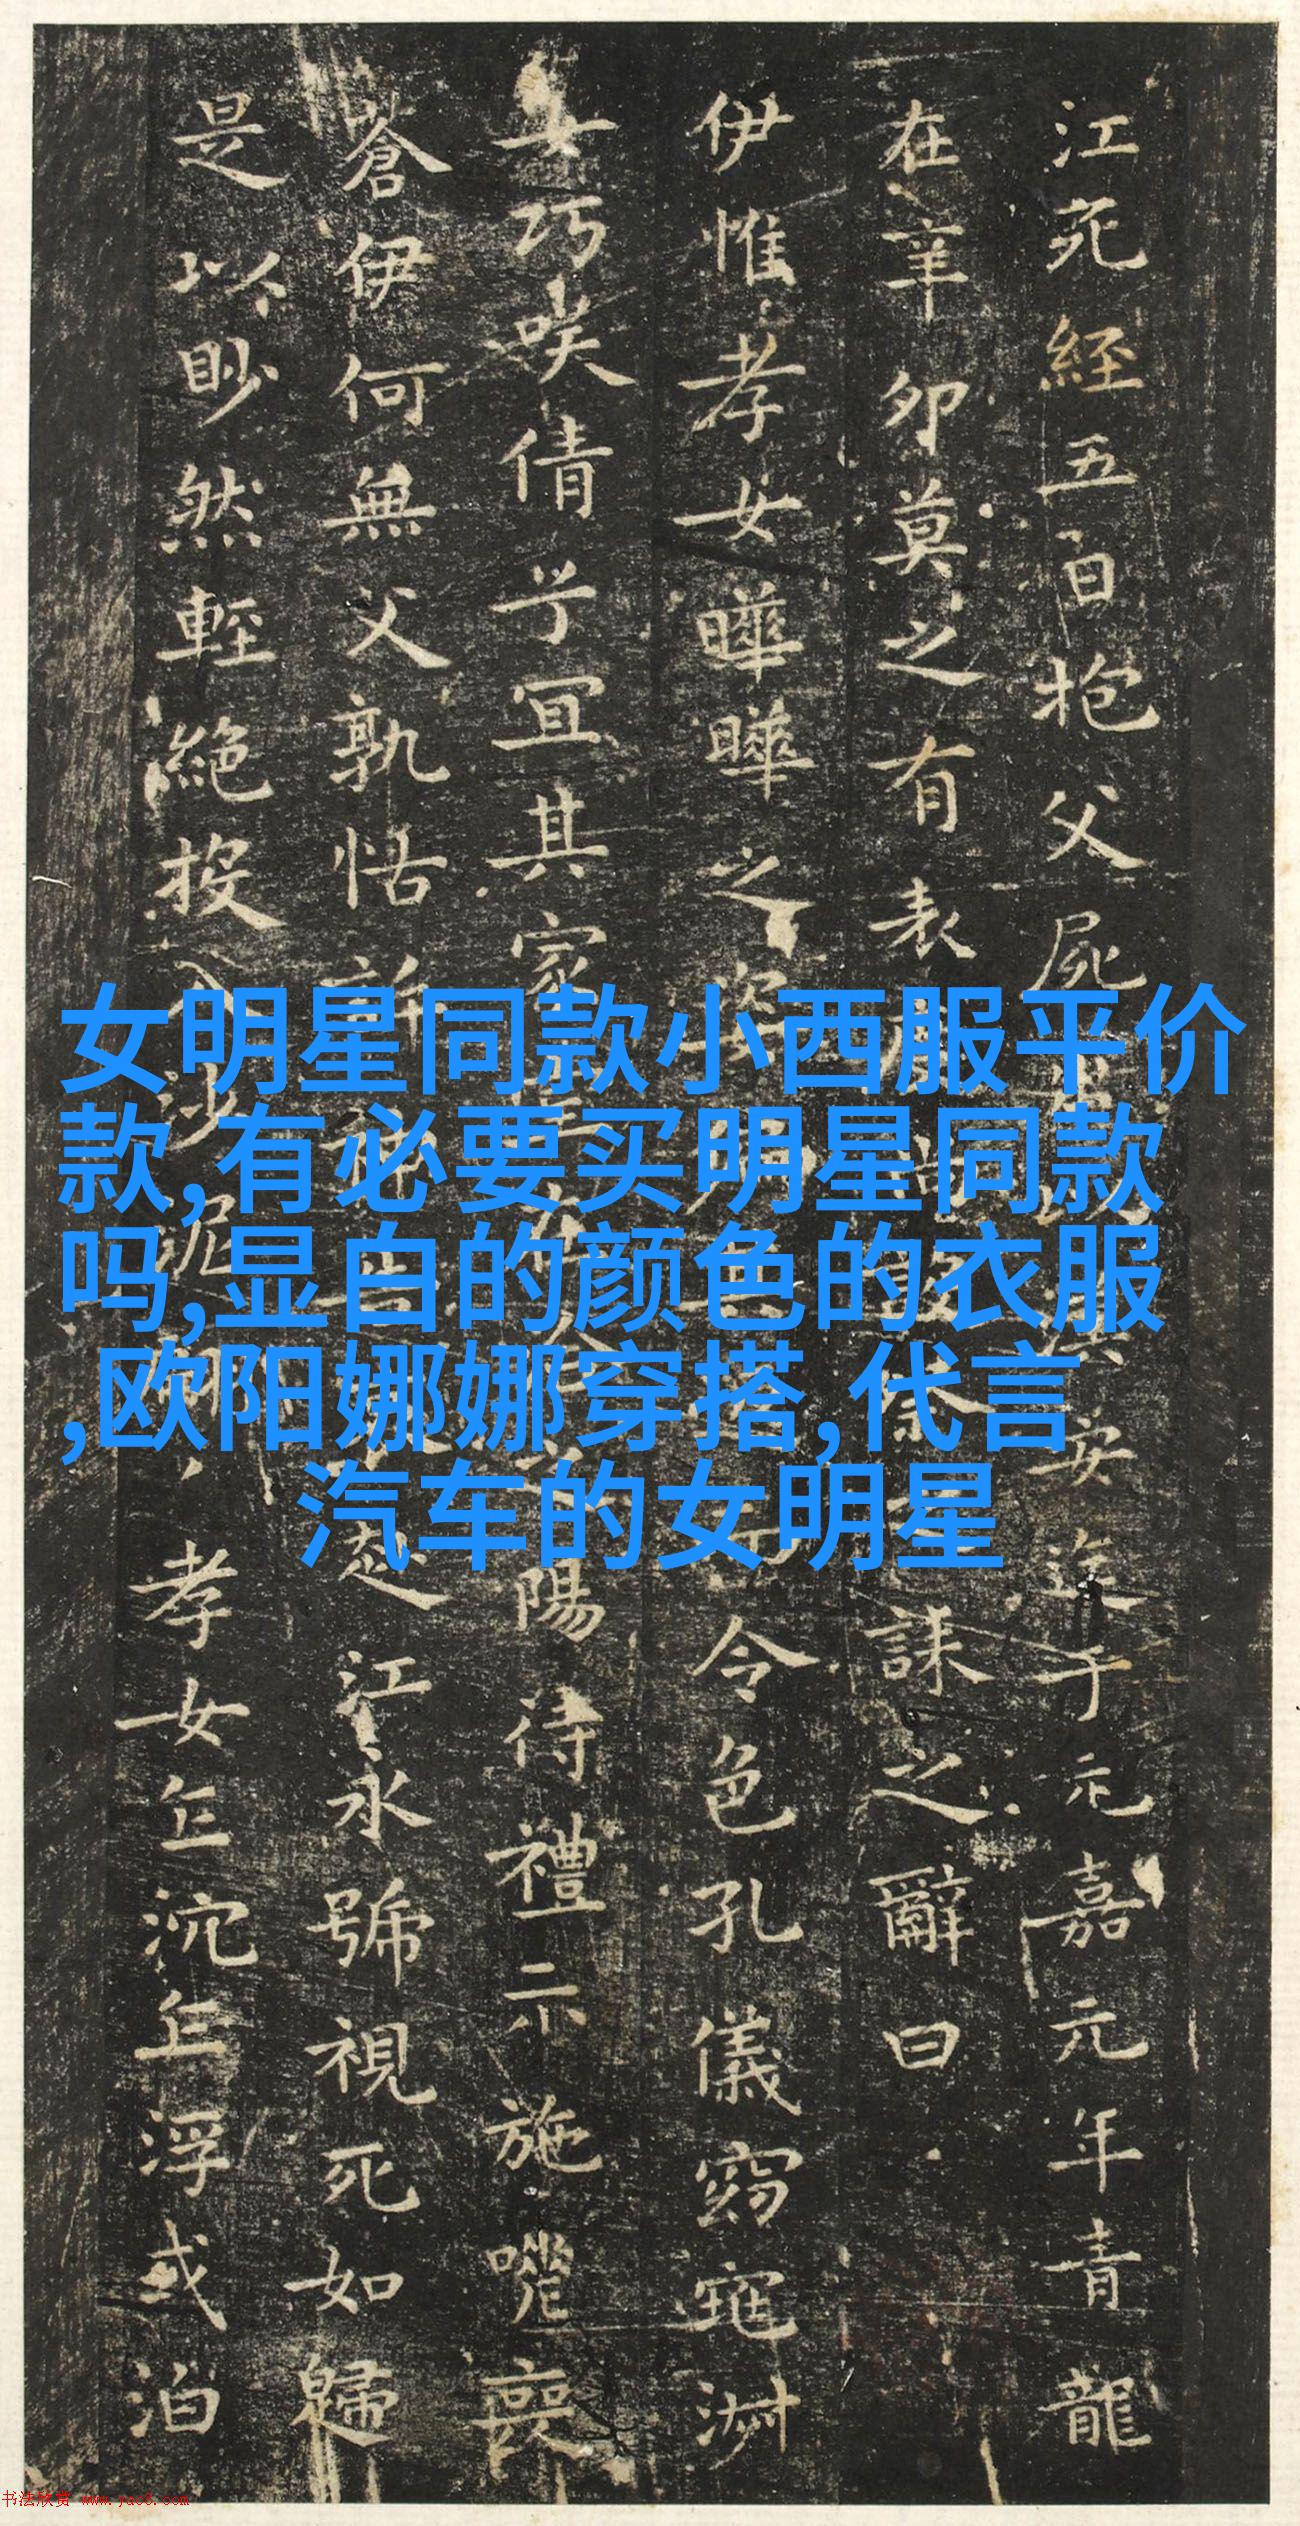 江死經五日抱父屍
安
于元嘉元年青龍
在辛卯莫之有表
誄之辭曰
伊惟孝女曄曄之姿
令色孔儀窈窕淑
女巧咲倩兮宜其家
陽待禮未施嗟喪
蒼伊何無父孰怙訴
江永號視死如歸
是以眇然輕絕投入沙泥
孝女乍沉乍浮或泊
女明星同款小西服平价
款,有必要买明星同款
吗,显白的颜色的衣服
,欧阳娜娜穿搭,代言
汽车的女明星
书法欣赏 www.yac8.com